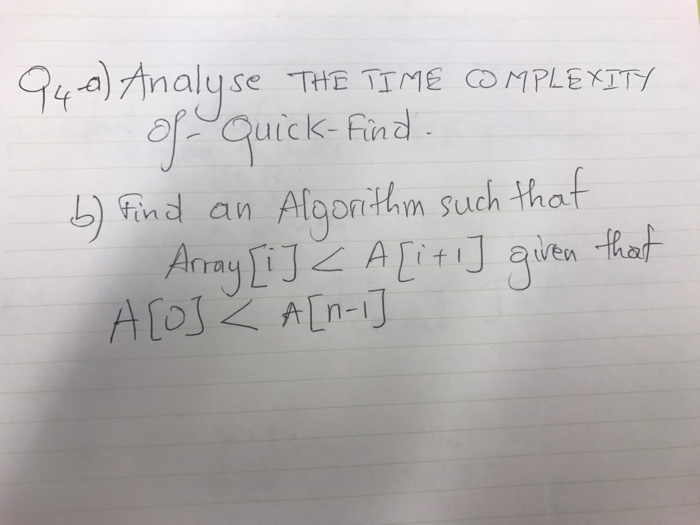 Q4 a) Analyse THE TIME COMPLEXITY
of- Quick-Find.
b) Find an Algorithm such that
Array[i] < A[i+1] given that
A[0] < A[n-1]